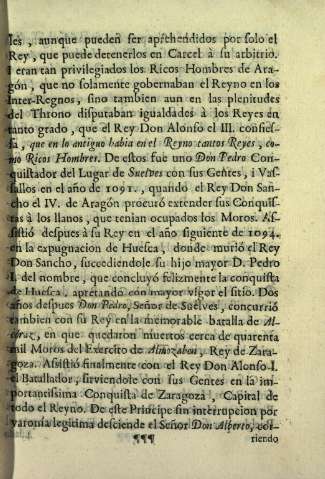 les, aunque pueden ser aprehendidos por solo el
Rey, que puede detenerlos en Carcel à su arbitrio.
I eran tan privilegiados los Ricos Hombres de Ara-
gón, que no solamente gobernaban el Reyno en los
Inter-Regnos, sino tambien aun en las plenitudes
del Throno disputaban igualdades à los Reyes en
tanto grado, que el Rey Don Alonso el III. confies-
sa, que en lo antiguo habia en el Reyno tantos Reyes, co-
mo Ricos Hombres. De estos fue uno Don Pedro Con-
quistador del Lugar de Suelves con sus Gentes, i Vas-
sallos en el año de 1091. quando el Rey Don San-
cho el IV. de Aragón procuró extender sus Conquis-
tas à los llanos, que tenian ocupados los Moros. As-
sistió despues à su Rey en el año siguiente de 1094.
en la expugnacion de Huesca, donde murió el Rey
Don Sancho, succediendole su hijo mayor D. Pedro
I. del nombre, que concluyó felizmente la conquista
de Huesca, apretando con mayor vigor el sitio. Dos
años despues Don Pedro, Señor de Suelves, concurrió
tambien con su Rey en la memorable batalla de Al-
coraz, en que quedaron muertos cerca de quarenta
mil Moros del Exercito de Almozaben, Rey de Zara-
goza. Assistió finalmente con el Rey Don Alonso I.
el Batallador, sirviendole con sus Gentes en la im-
portantissima Conquista de Zaragoza, Capital de
todo el Reyno. De este Principe sin interrupcion por
varonía legitima desciende el Señor Don Alberto, cor-
¶¶¶ riendo